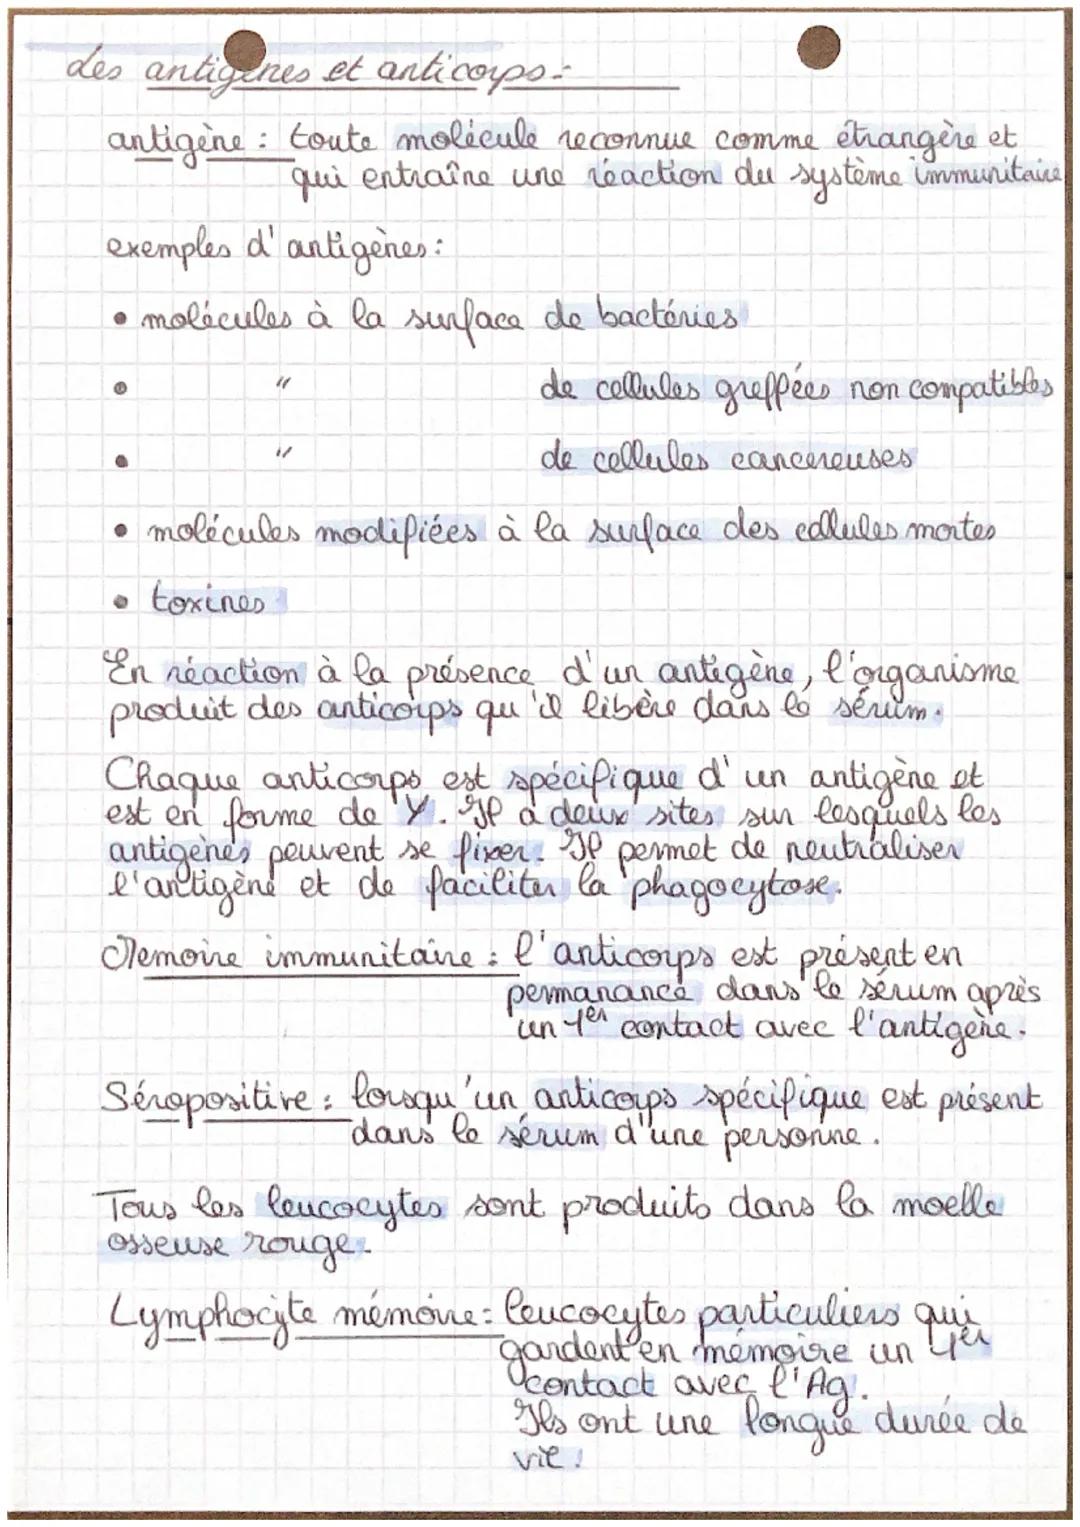 les antigènes et anticorps :
antigène : toute molécule reconnue comme étrangère et
qui entraîne une réaction du système immunitaire
exemples d'antigènes :
• molécules à la surface de bactéries
• " de cellules greffées non compatibles
• " de cellules cancereuses
• molécules modifiées à la surface des cellules mortes
• toxines
En réaction à la présence d'un antigène, l'organisme
produit des anticorps qu'il libère dans le sérum.
Chaque anticorps est spécifique d'un antigène et
est en forme de Y. Il a deux sites sur lesquels les
antigènes peuvent se fixer. Il permet de neutraliser
l'antigène et de faciliter la phagocytose.
Memoire immunitaire : l'anticorps est présent en
permanance dans le sérum après
un 1er contact avec l'antigène.
Séropositive : lorsqu'un anticorps spécifique est présent
dans le sérum d'une personne.
Tous les leucocytes sont produits dans la moelle
osseuse rouge.
Lymphocyte mémoire : leucocytes particuliers qui
gardent en mémoire un 1er
contact avec l'Ag.
Ils ont une longue durée de
vie.